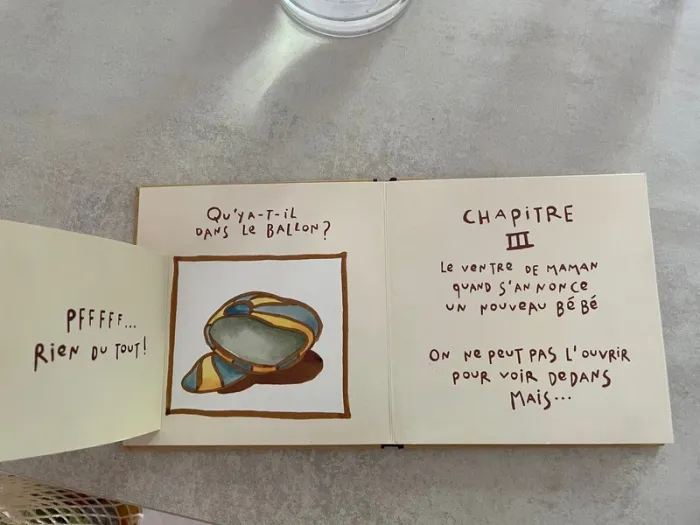 PFFFFF...
RiEN DU TOUT!
QU'Y A-T-iL
DANS LE BALLON?
CHAPiTRE
III
LE VENTRE DE MAMAN
QUAND S'ANNONCE
UN NOUVEAU BÉBÉ
ON NE PEUT PAS L'OUVRIR
POUR VOIR DEDANS
MAIS...